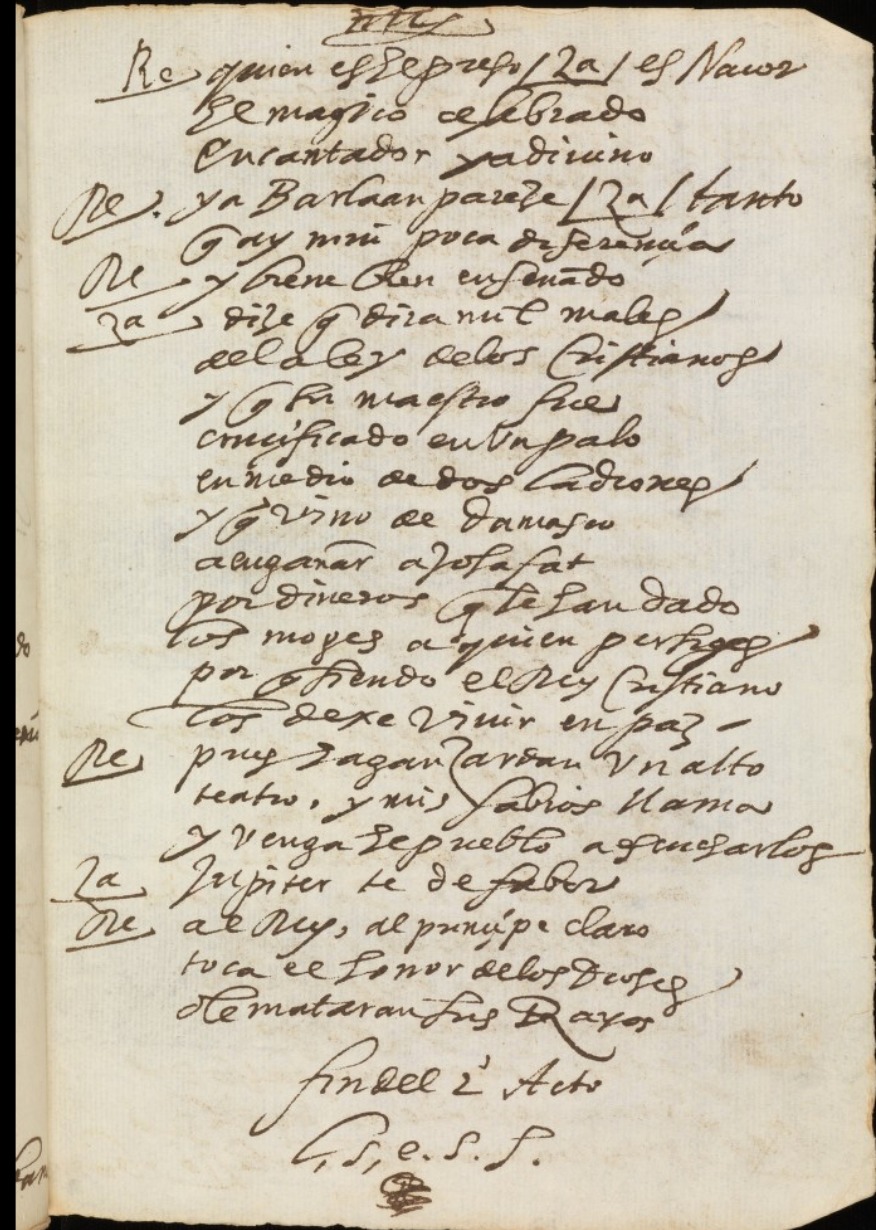 Re quien es El preso / Za / es Nacor
El magico celebrado
Encantador y adiuino
Re. ya Barlaan pareze / Za / tanto
q ay mui poca diferençia
Re y biene bien enseñado
Za dize q dira mil males
de la ley de los Cristianos
y q su maestro fue
cruçificado en Vn palo
en medio de dos ladrones
y q vino de Damasco
a engañar a Josafat
por dineros q le han dado
los monges a quien persiges
por q siendo el Rey Cristiano
los dexe viuir en paz
Re pues hagan Zardan Vn alto
teatro, y mis sabios llama
y venga El pueblo a escucharlos
Za Jupiter te de fabor
Re al Rey, al prinçipe claro
toca el honor de los Dioses
o le mataran sus Rayos
fin del 2º Acto
L, S, e. S. S.